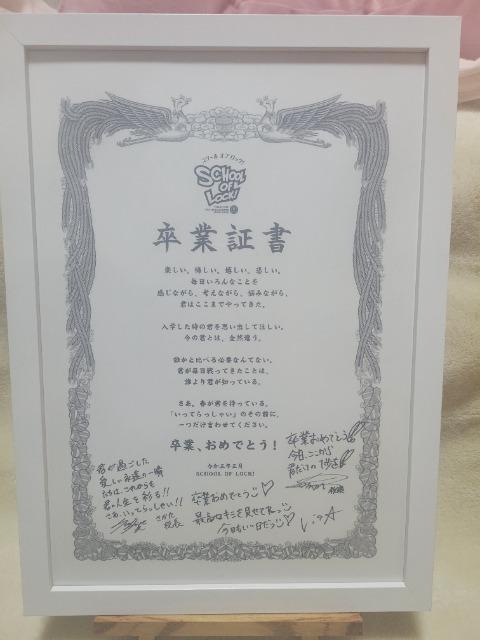 スクール オブ ロック!
SCHOOL
OF
LOCK!
卒業証書
楽しい。悔しい。嬉しい。悲しい。
毎日いろんなことを
感じながら、考えながら、悩みながら、
君はここまでやってきた。
入学した時の君を思い出してほしい。
今の君とは、全然違う。
誰かと比べる必要なんてない。
君が毎日戦ってきたことは、
誰より君が知っている。
さあ。春が君を待っている。
「いってらっしゃい」のその前に、
一つだけ言わせてください。
卒業、おめでとう!
令和三年三月
SCHOOL OF LOCK!
君が過ごした
愛しい永遠の一瞬
たちは、これからも
君の人生を彩る!!
さあ、いってらっしゃい!!
さかた
校長
卒業おめでとう
最高なキミを見せてねっ
今日もいい日だっ
卒業おめでとう
今日、ここから
君だけの
教頭